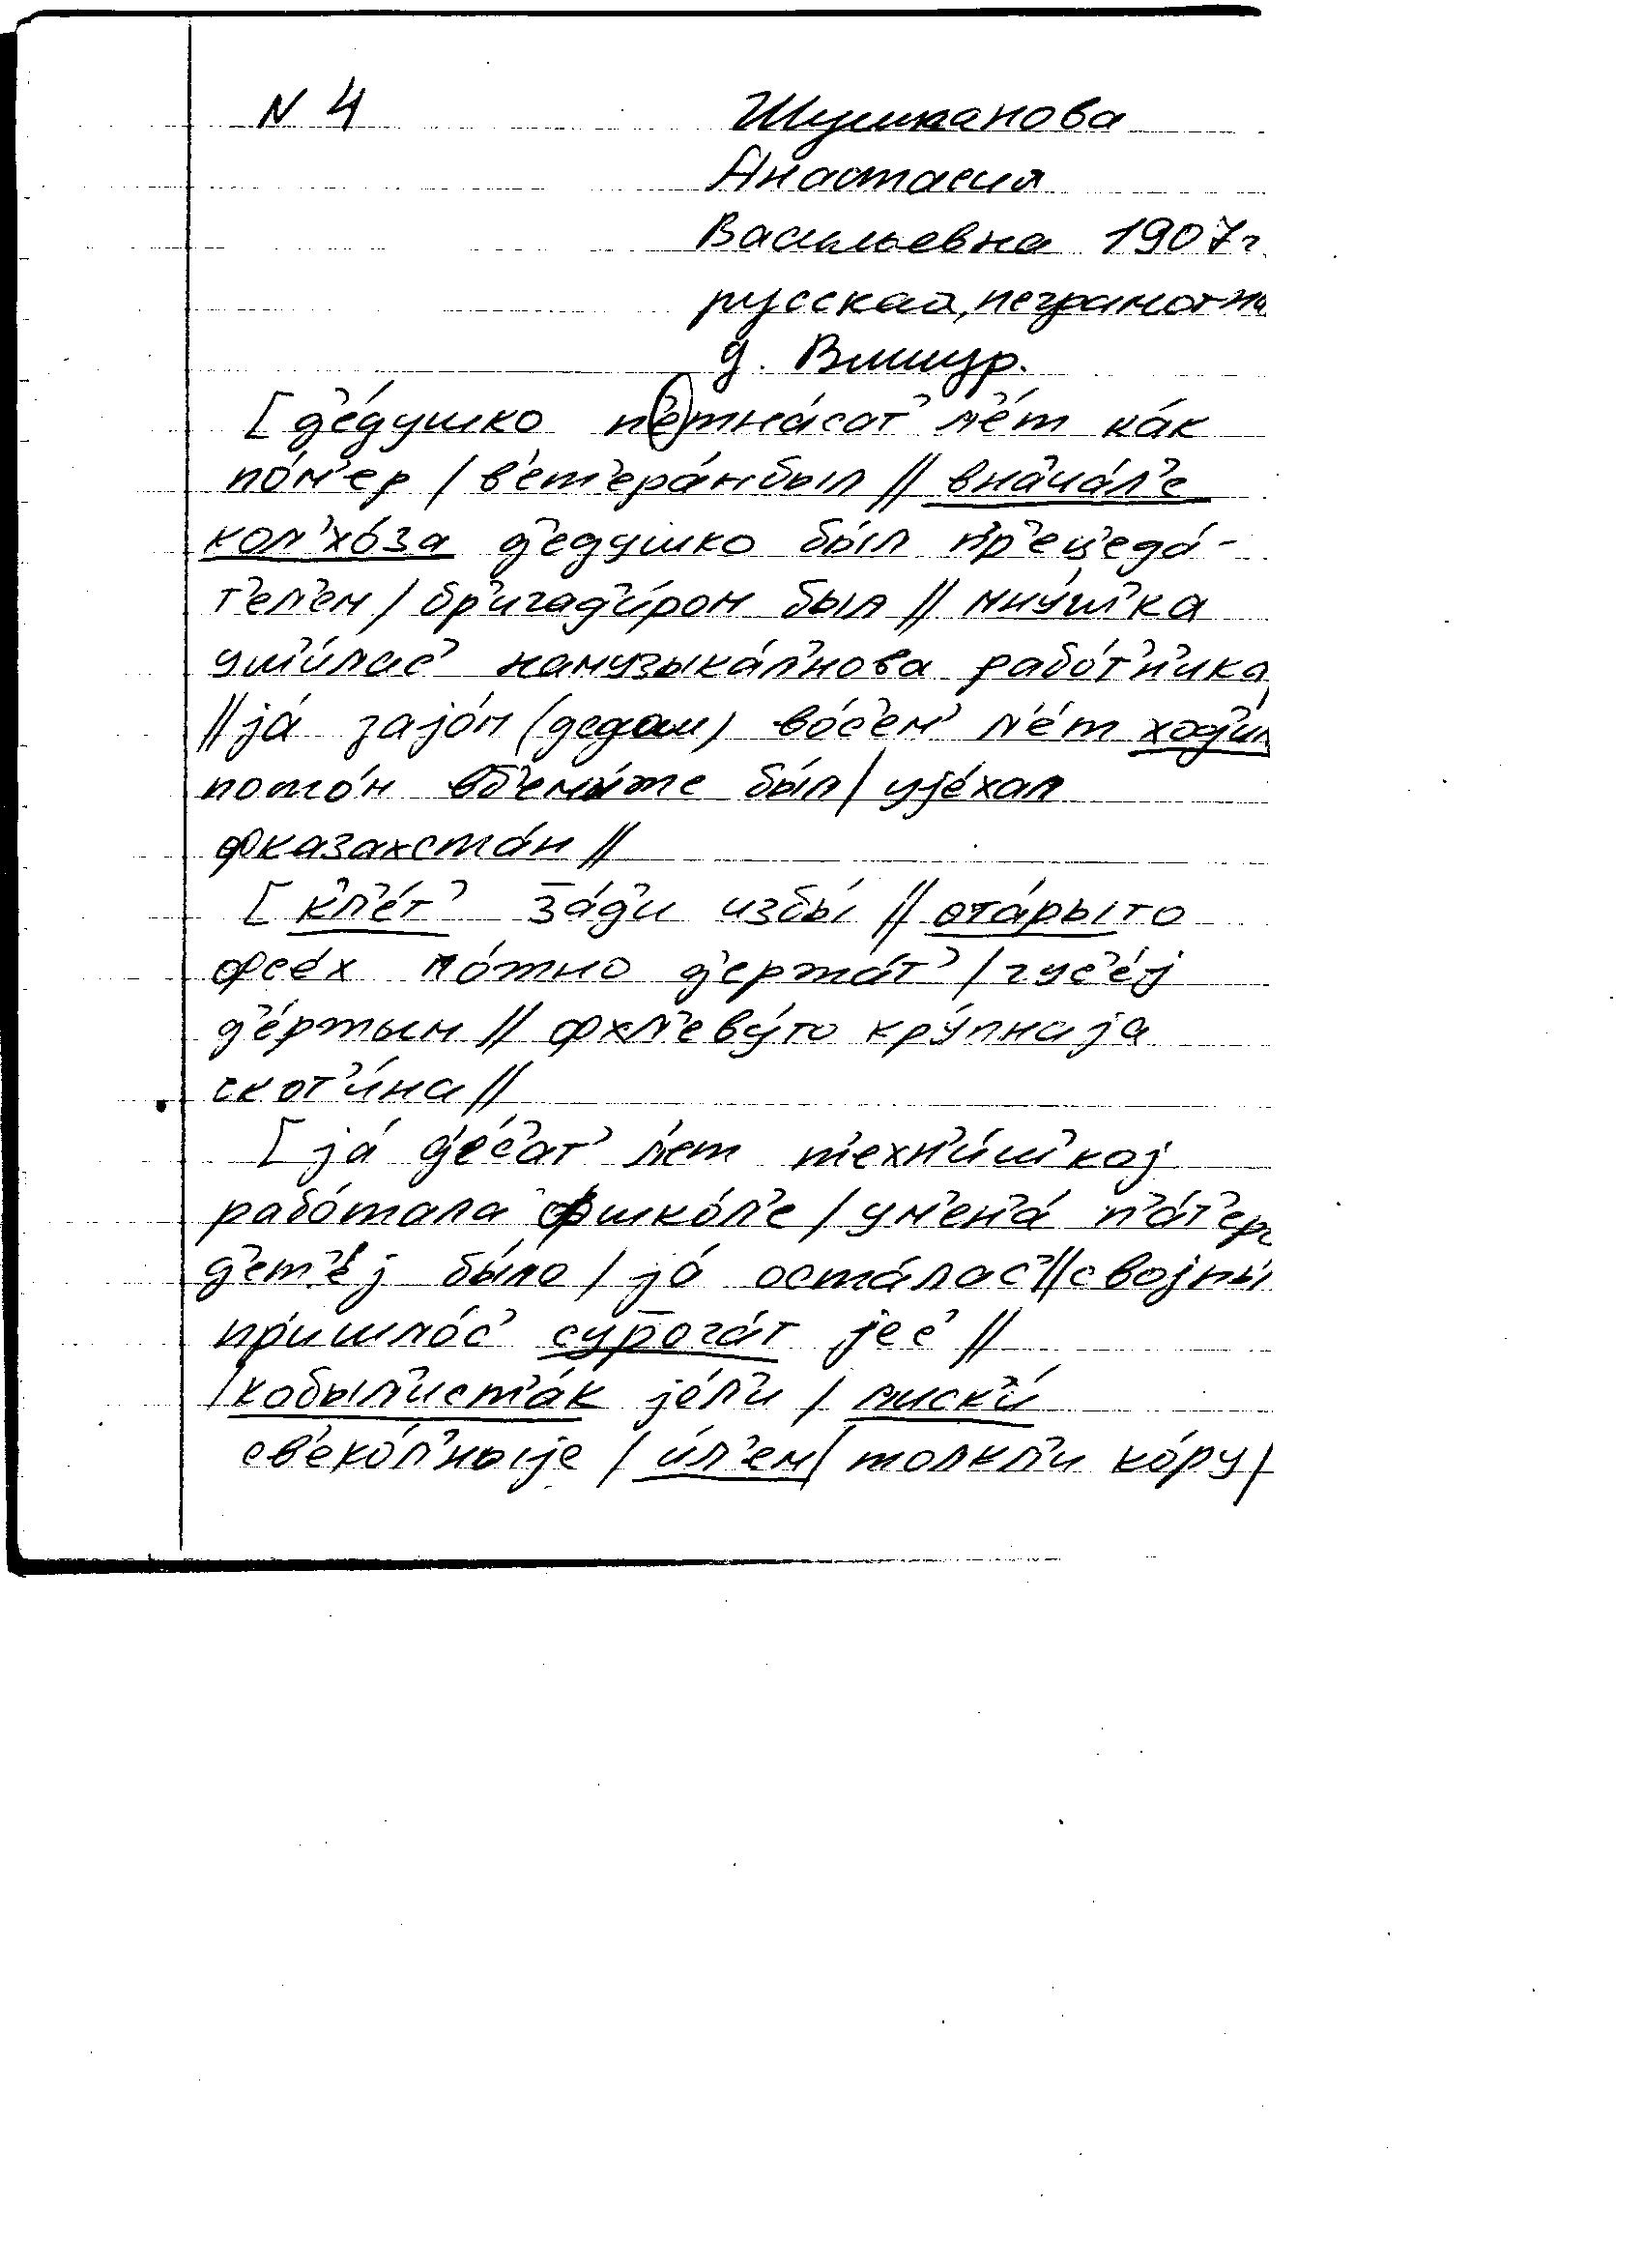 N 4 Шушканова
Анастасия
Васильевна 1907г
русская, неграмотна
д. Вишур.
[д'е́душко п'етна́сат' л'е́т ка́к
по́м'ер / в'ет'ера́нбыл // внач'а́л'е
кол'хо́за д'е́душко бы́л пр'ец'еда́-
т'ел'ем / бр'игад'и́ром был // мну́ш'ка
уш'и́лас' намузыка́л'нова рабо́т'н'ика
// jа́ заjо́м (дедом) во́с'ем' л'е́т ход'ил
пото́м был / уjе́хал
фказахста́н //
[кл'е́т' за́д'и избы́ // ота́рыто
фсе́х мо́жно д'ержа́т' / гус'е́j
д'е́ржым // фхл'еву́то кру́пнаjа
скот'и́на //
[jа́ д'е́с'ат' л'ет т'ехн'и́ш'коj
рабо́тала фшко́л'е / ум'ен'а́ п'а́т'еро
д'ет'е́j бы́ло / jа́ оста́лас' // своjны́
пр'ишло́с' сурога́т jес' //
/ кобыл'ист'а́к jе́л'и / лиск'и́
св'еко́л'ныjе / и́л'ем / толкл'и ко́ру /